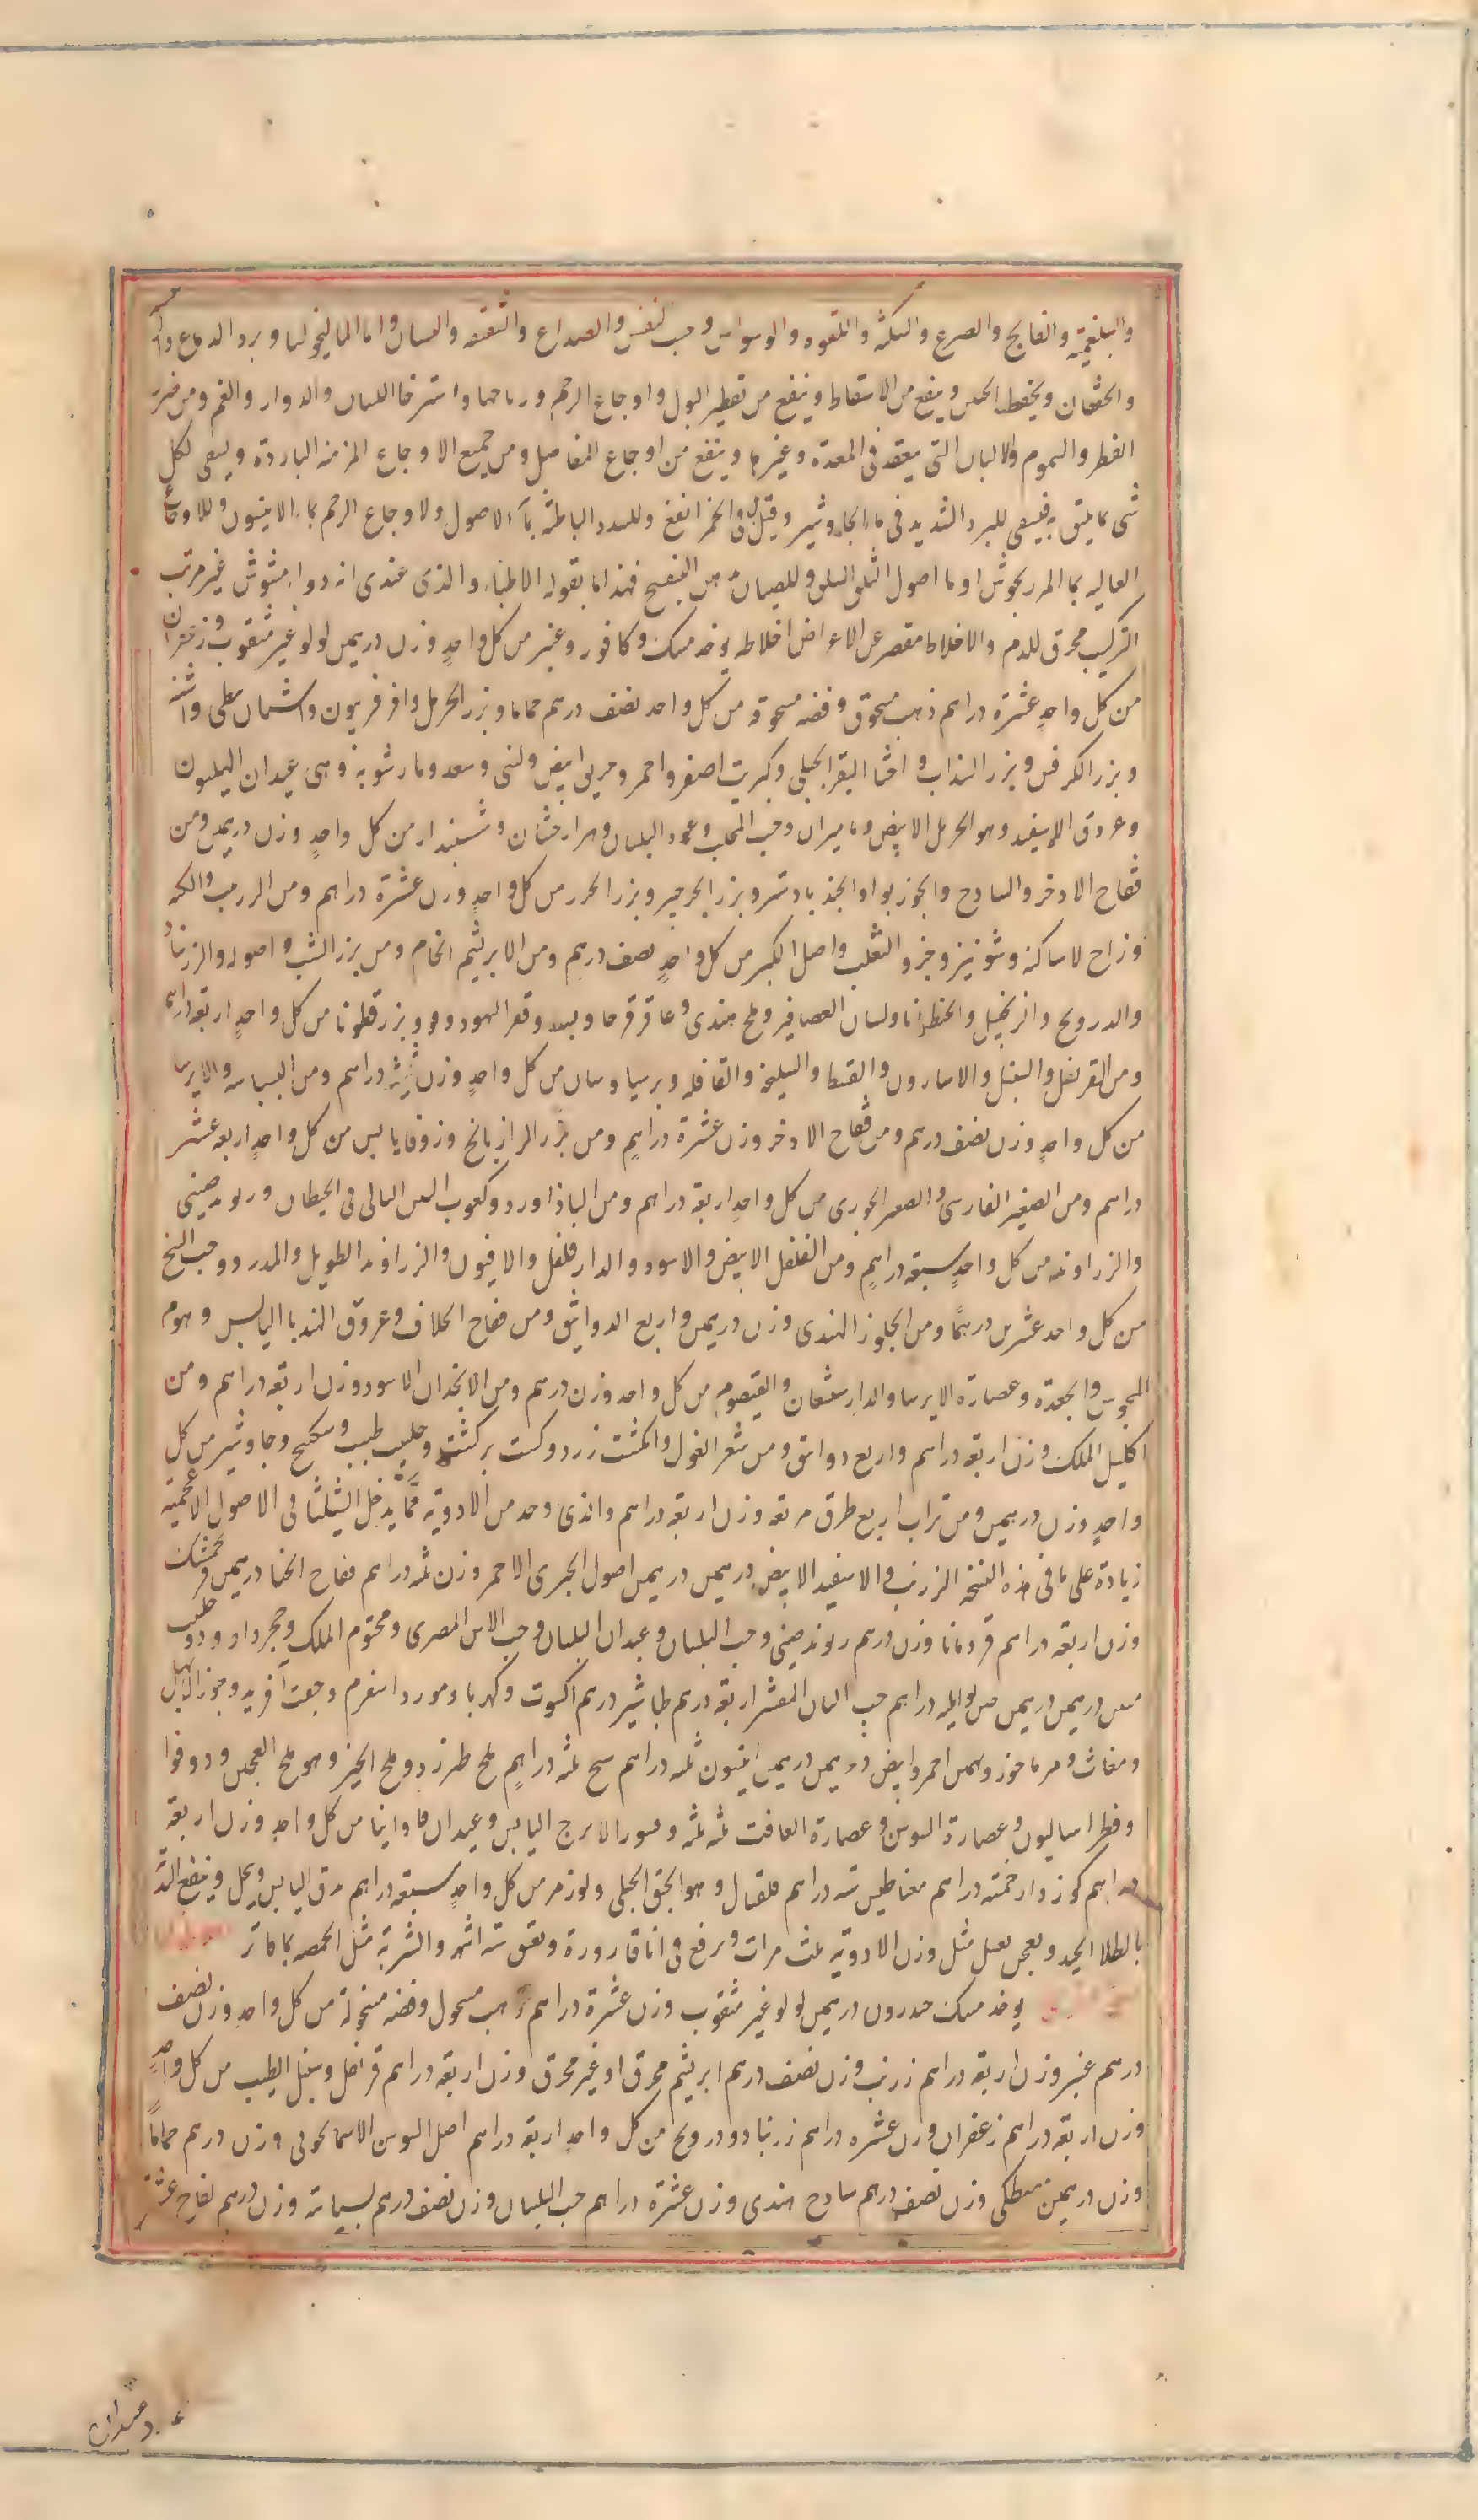 والبلغمية والفالج والصرع والسكتة واللقوة والوسواس وحب لنفس والصداع والشقيقة والنسيان واما الماليخوليا وبرد الدماغ
والخفقان ويحفظ الجنين وينفع من الاسقاط وينفع من تقطير البول واوجاع الرحم ورياحها واسترخا اللسان والدوار والغم ومن مضرة
الفطر والسموم والالبان التى ينعقد فى المعدة وغيرها وينفع من اوجاع المفاصل ومن جميع الاوجاع المزمنة الباردة ويسقى لكل
شى بما يليق به فيسقى للبرد الشديد فى ماء الجاوشير وقيل ان فى الخمر انفع وللسدد الباطنة بماء الاصول ولاوجاع الرحم بماء الانيسون وللاوجاع
العاليه بماء المرزنجوش او ماء اصول السلق وللصبيان فهذا ما يقوله الاطباء والذى عندى انه دواء مشوش غير مرتب
التركيب محرق للدم والاخلاط مقصر عن الاعراض اخلاطه يوخذ مسك وكافور وعنبر من كل واحدٍ وزن درهمين لولو غير مثقوب وزعفران
من كل واحدٍ عشرة دراهم ذهب مسحوق وفضه مسحوقه من كل واحد نصف درهم حماما وبزر الحرمل وافرفريون واشنان نبطى واشنه
وبزر الكرفس وبزر السذاب واخثا البقر الجبلى وكبريت اصفر واحمر وحربق ابيض ولبنى وسعد ومارشوبه وهى عيدان الهليون
وعروق الاسفند وهو الحرمل الابيض وماميران وحب المحلب وعود البلسان وهزارجشان وششبندار من كل واحدٍ وزن درهمين ومن
فقاح الاذخر والسادج والجوزبوا والجندبادستر وبزر الجرجير وبزر الجزر من كل واحدٍ وزن عشرة دراهم ومن الزرنب والكمه
وزاج الاساكفه وشونيز وخرو الثعلب واصل الكبر من كل واحدٍ نصف درهم ومن الابريشم الخام ومن بزر الشبث واصوله والزرنباد
والدرونج والزنجبيل والجنطيانا ولسان العصافير وملح هندى وعاقرقرحا وبسد وقفر اليهود وفو وبزر قطونا من كل واحدٍ اربعة دراهم
ومن القرنفل والسنبل والاسارون والقسط والسليخة والقاقله وبرسياوسان من كل واحدٍ وزن ثلثه دراهم ومن البسباسه والايرسا
من كل واحدٍ وزن نصف درهم ومن فقاح الاذخر وزن عشرة دراهم ومن بزر الرازيانج وزوفا يابس من كل واحدٍ اربعه عشر
دراهم ومن الصعتر الفارسى والصعتر الجورى من كل واحدٍ اربعة دراهم ومن الباذاورد وكعوب التبن البالى فى الحيطان وريوند صينى
والزراوند من كل واحدٍ سبعة دراهمٍ ومن الفلفل الابيض والاسود والدارفلفل والافيون والزراوند الطويل والمدرد وحب البنج
من كل واحد عشرين درهمًا ومن الجلوز الهندى وزن درهمين واربع الدوانيق ومن فقاح الخلاف وعروق الهندبا اليابس وهوم
المجوس والجعدة وعصارة الايرسا والدارشيشعان والقيصوم من كل واحد وزن درهم ومن الانجدان الاسود وزن اربعة دراهم ومن
اكليل الملك وزن اربعة دراهم واربع دوانيق ومن شعر الغول وانكشت زرد وكست بركست وحليب طيب وسكبينج وجاوشير من كل
واحدٍ وزن درهمين ومن تراب اربع طرق مربعه وزن اربعة دراهم والذى وجد من الادوية مما يدخل الشليثا فى الاصول الاعجمية
زيادة على ما فى هذه النسخ الزرنب والاسفيد الابيض درهمين درهمين اصول الخيرى الاحمر وزن ثلثه دراهم فقاح الحنا درهمين فرنجمشك
وزن اربعة دراهم قردمانا وزن درهم ريوند صينى وحب البلسان وعيدان البلسان وحب الآس المصرى ومختوم الملك وحجر
درهمين درهمين دراهم حب البان المقشر اربعة درهم طباشير درهم اكسوت وكهربا ومورد اسفرم وجفت آفريد وجوز الابهل
ومغاث ومرماخوز وبهمن احمر وابيض درهمين درهمين انيسون ثلثه دراهم ثلثه دراهمٍ ملح طبرزد وملح الخبز وهو ملح العجين ودوقوا
وفطراساليون وعصارة السوسن وعصارة الغافت ثلثه ثلثه وقشور الاترج اليابس وعيدان فاوانيا من كل واحدٍ وزن اربعة
دراهم خمسة دراهم مغناطيس ستة دراهم وهو الحبق الجبلى ولوز مر من كل واحدٍ سبعة دراهم يدق اليابس وينخل وينقع
بالطلاء الجيد ويعجن بعسل مثل وزن الادويه ثلث مرات ويرفع فى انا قارورة ويعتق ستة اشهر والشربة مثل الحمصه بماء فاتر
يوخذ مسك درهمين لولو غير مثقوب وزن عشرة دراهم ذهب مسحول وفضه منخولة من كل واحدٍ وزن نصف
درهم عنبر وزن اربعة دراهم زرنب وزن نصف درهم ابريشم محرق او غير محرق وزن اربعة دراهم قرنفل وسنبل الطيب من كل واحدٍ
وزن اربعة دراهم زعفران وزن عشره دراهم زرنباد ودرونج من كل واحدٍ اربعة دراهم اصل السوسن الاسمانجونى وزن درهم حماما
وزن درهمين مصطكى وزن نصف درهم سادج هندى وزن عشرة دراهم حب البلسان وزن نصف درهم بسباسه وزن درهم فقاح